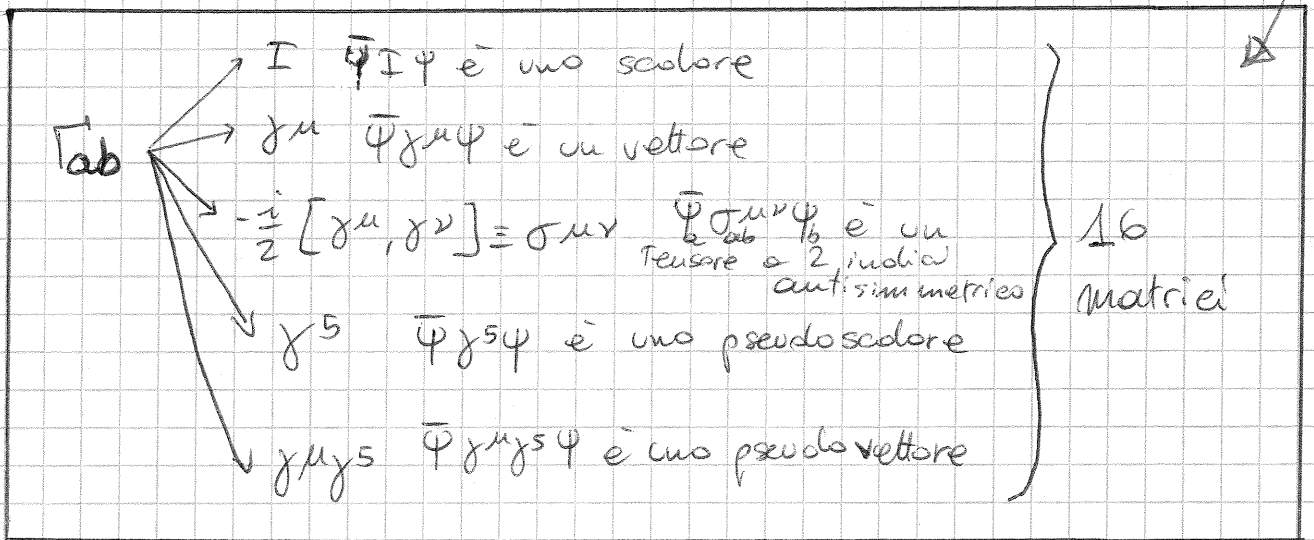 I ψ̄Iψ è uno scalare
Γab
γμ ψ̄γμψ è un vettore
-i/2 [γμ, γν] ≡ σμν ψ̄a σμν ab ψb è un
Tensore a 2 indici
antisimmetrico
γ5 ψ̄γ5ψ è uno pseudoscalare
γμγ5 ψ̄γμγ5ψ è uno pseudovettore
16
matrici